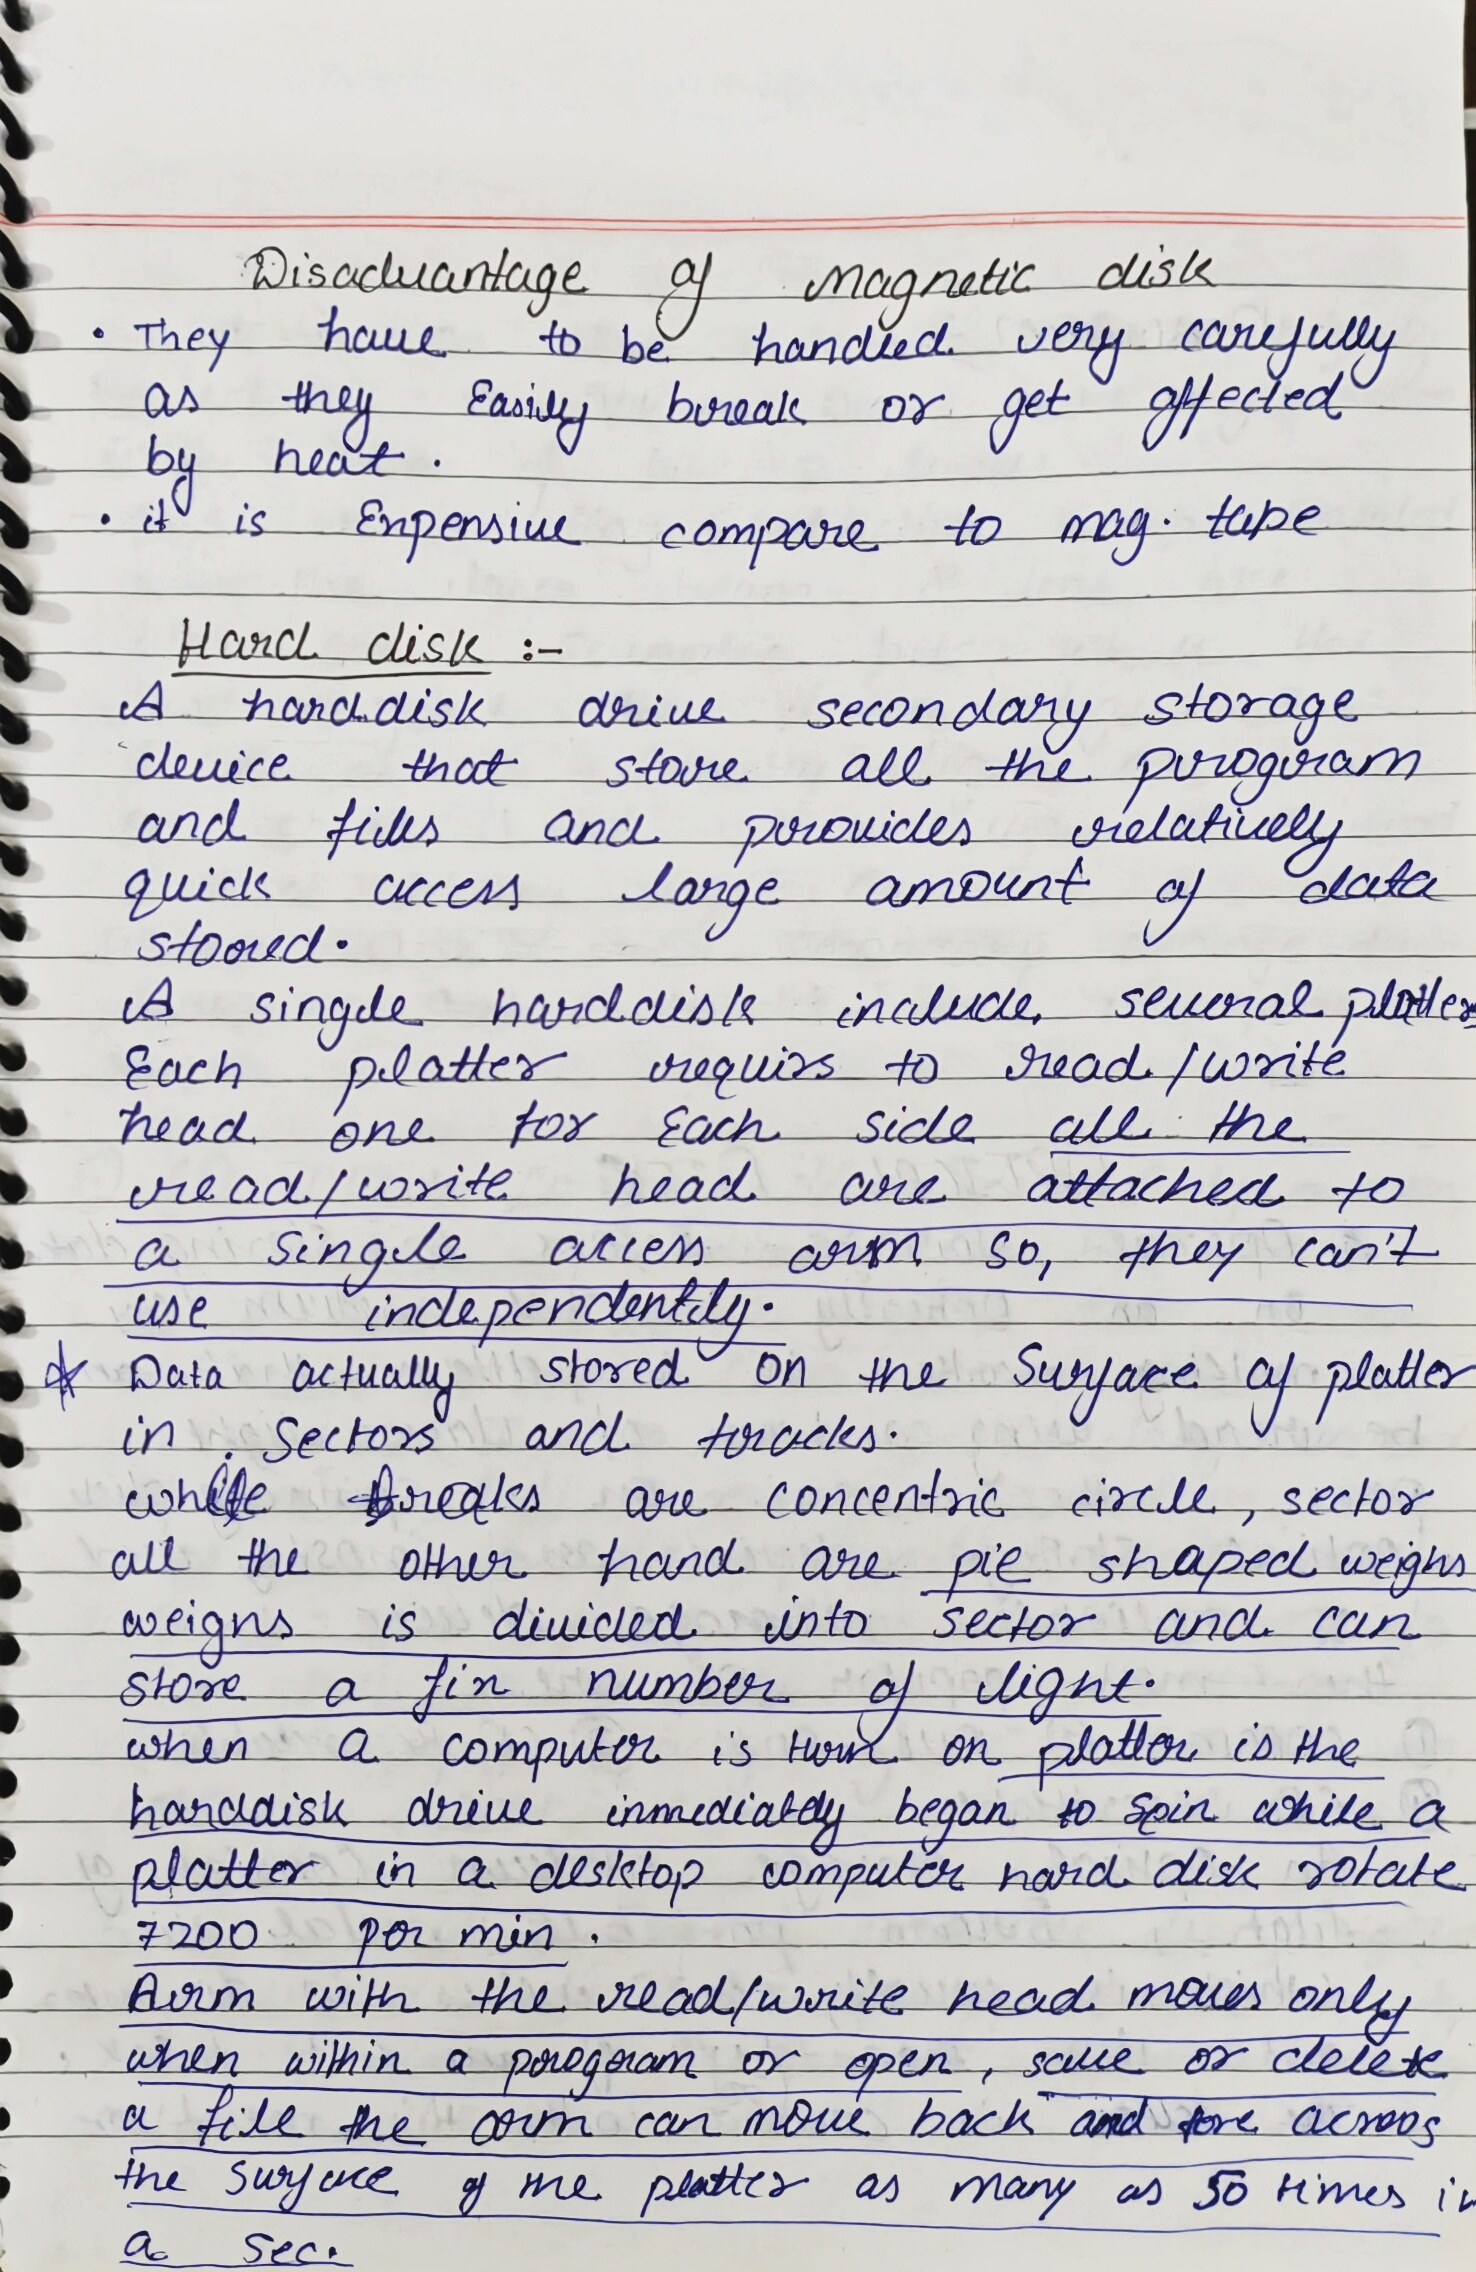 Disadvantage of Magnetic disk
• They have to be handled very carefully
as they Easily break or get affected
by heat.
• it is Expensive compare to mag. tape
Hard disk :-
A harddisk drive secondary storage
device that store all the program
and files and provides relatively
quick access large amount of data
stored.
A single harddisk include several platters
Each platter requirs to read/write
head one for Each side all the
read/write head are attached to
a single access arm so, they can't
use independently.
* Data actually stored on the Surface of platter
in Sectors and tracks.
while are concentric circle, sector
all the other hand are pie shaped weighs
weighs is divided into sector and can
store a fix number of light.
when a computer is turn on platter is the
harddisk drive immediately began to spin while a
platter in a desktop computer hard disk rotate
7200 per min.
Arm with the read/write head moves only
when within a program or open, save or delete
a file the arm can move back and fore across
the surface of the platter as many as 50 times in
a sec.